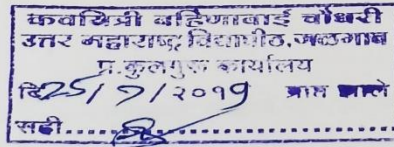 कवयित्री बहिणाबाई चौधरी
उत्तर महाराष्ट्र विद्यापीठ, जळगाव
प्र.कुलगुरू कार्यालय
दि 25/7/२०१9 प्राप्त झाले
सही..................